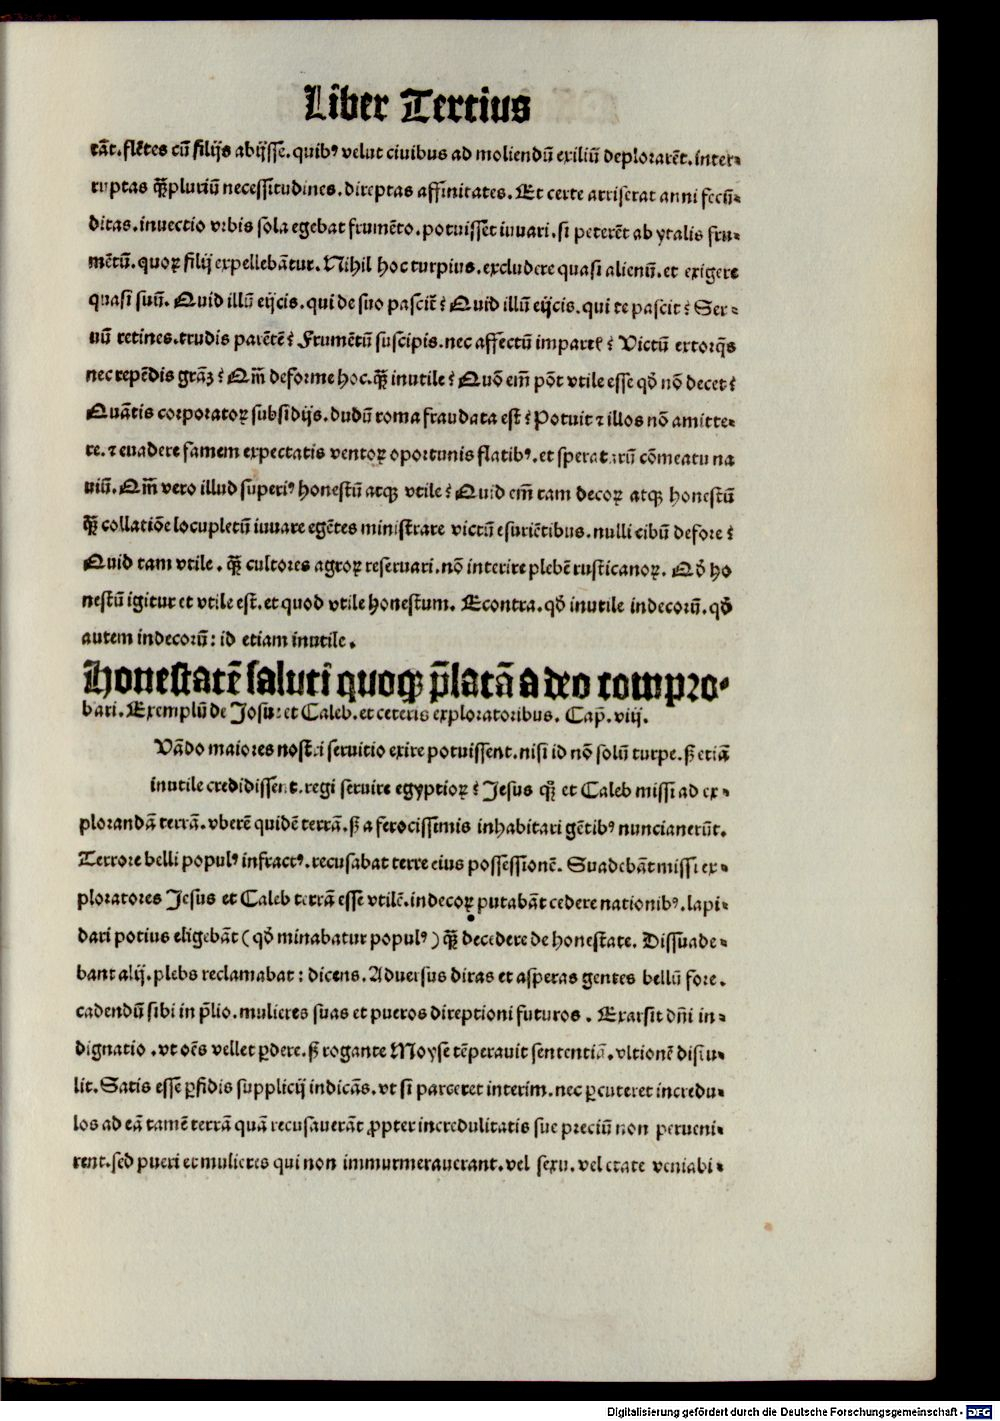 Liber Tertius
rāt. flētes cū filijs abijsse. quibꝰ velut ciuibus ad moliendū exiliū deplorarēt. inter-
ruptas qꝫ̄ pluriū necessitudines. direptas affinitates. Et certe arriserat anni fecū-
ditas. inuectio vrbis sola egebat frumēto. potuissēt iuuari. si peterēt ab ytalis fru-
mētū. quoꝝ filij expellebātur. Nihil hoc turpius. excludere quasi alienū. et exigere
quasi suū. Quid illū eijcis. qui de suo pascit̄ ? Quid illū eijcis. qui te pascit ? Ser-
uū retines. trudis parētē ? Frumētū suscipis. nec affectū impartꝭ ? Victū extorq̄s
nec repēdis grāꝫ ? Qm̄ deforme hoc. qꝫ̄ inutile ? Quō em̄ pōt vtile esse qd̄ nō decet ?
Quātis corporatoꝝ subsidijs. dudū roma fraudata est ? Potuit ⁊ illos nō amitte-
re. ⁊ euadere famem expectatis ventoꝝ oportunis flatibꝰ. et speratarū cōmeatu na
uiū. Qm̄ vero illud superiꝰ honestū atqꝫ vtile ? Quid em̄ tam decoꝝ atqꝫ honestū
qꝫ̄ collatiōe locupletū iuuare egētes ministrare victū esuriētibus. nulli cibū defore ?
Quid tam vtile. qꝫ̄ cultores agroꝝ reseruari. nō interire plebē rusticanoꝝ. Qd̄ ho
nestū igitur et vtile est. et quod vtile honestum. Econtra. qd̄ inutile indecorū. qd̄
autem indecorū: id etiam inutile.
Honestatē saluti quoqꝫ p̄latā a deo compro-
bari. Exemplū de Josue et Caleb. et ceteris exploratoribus. Cap̄. viij.
Vādo maiores nostri seruitio exire potuissent. nisi id nō solū turpe. sꝫ etiā
inutile credidissent. regi seruire egyptioꝝ ? Jesus qꝫ̄ et Caleb missi ad ex-
plorandā terrā. vberē quidē terrā. sꝫ a ferocissimis inhabitari gētibꝰ nunciauerūt.
Terrore belli populꝰ infractꝰ. recusabat terre eius possessionē. Suadebāt missi ex-
ploratores Jesus et Caleb terrā esse vtilē. indecoꝝ putabāt cedere nationibꝰ. lapi-
dari potius eligebāt (qd̄ minabatur populꝰ) qꝫ̄ decedere de honestate. Dissuade-
bant alij. plebs reclamabat: dicens. Aduersus diras et asperas gentes bellū fore.
cadendū sibi in p̄lio. mulieres suas et pueros direptioni futuros. Exarsit dn̄i in-
dignatio. vt oēs vellet ꝑdere. sꝫ rogante Moyse tēperauit sententiā. vltionē distu-
lit. Satis esse ꝑfidis supplicij indicās. vt si parceret interim. nec ꝑcuteret incredu-
los ad eā tamē terrā quā recusauerāt ꝓpter incredulitatis sue preciū non perueni-
rent. sed pueri et mulieres qui non immurmerauerant. vel sexu. vel etate veniabi-
Digitalisierung gefördert durch die Deutsche Forschungsgemeinschaft - DFG